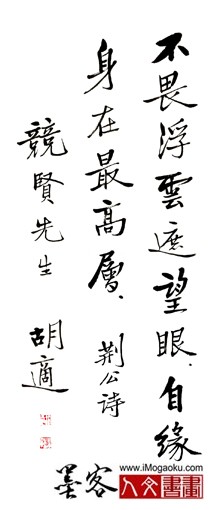 不畏浮雲遮望眼、自缘
身在最高層、荆公诗
競賢先生
胡適
墨客
www.iMogaoku.com
人文書畫